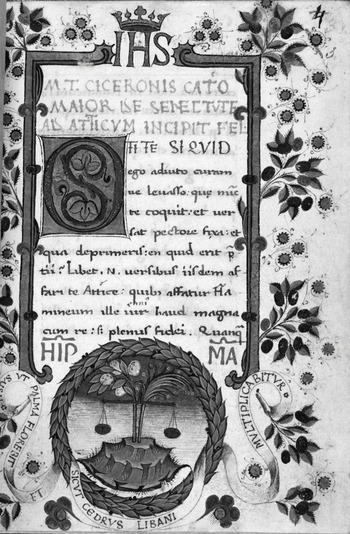 IHS
M.T. CICERONIS CATO
MAIOR DE SENECTVTE
AD ATTICVM INCIPIT FEL
TITE SI QVID
ego adiuto curam
ue leuasso. que nunc
te coquit: et uer
sat pectore fixa: et
qua deprimeris: en quid erit p
tii? Libet. N. uersibus iisdem af
fari te Attice: quibus affatur Fla
mineum ille uir haud magna
cum re: si plenus fidei. Quanq
HIP MA
VT PALMA FLOREBIT
SICVT CEDRVS LIBANI
MULTIPLICABITVR